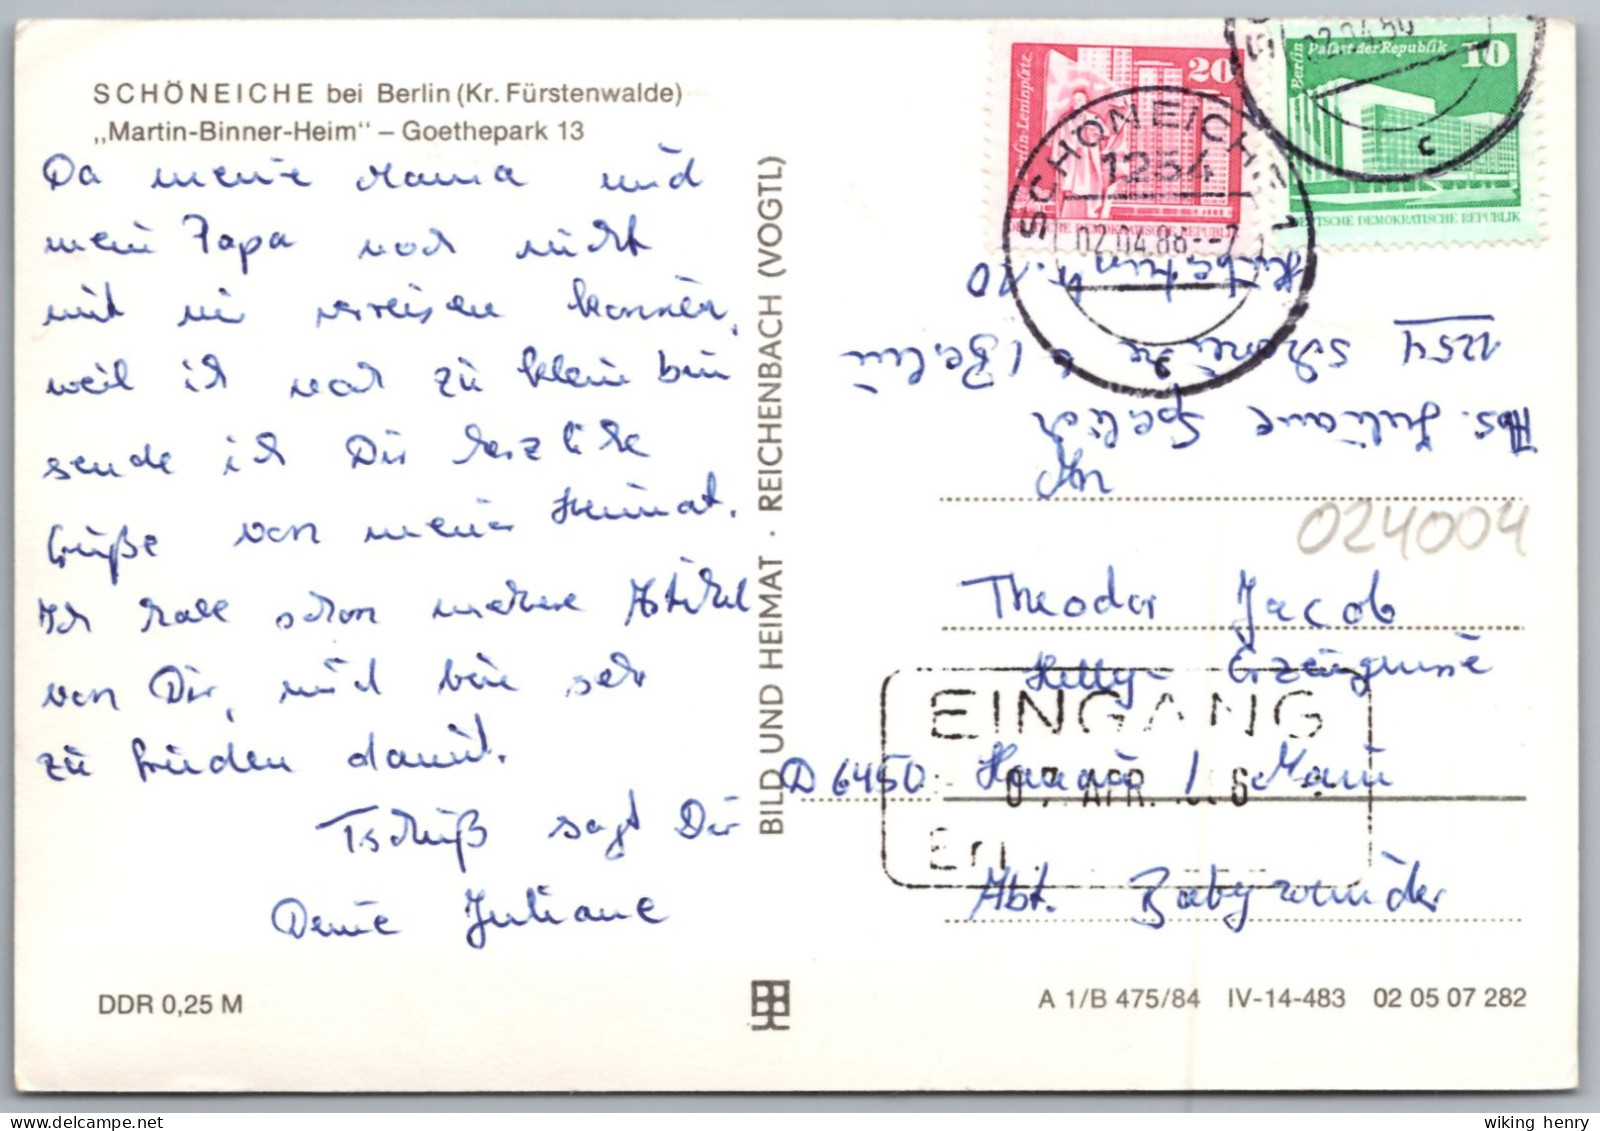 SCHÖNEICHE bei Berlin (Kr. Fürstenwalde)
„Martin-Binner-Heim" – Goethepark 13
Da meine Mama und
mein Papa noch nicht
mit mir verreisen können,
weil ich noch zu klein bin
sende ich Dir herzliche
Grüße von meiner Heimat.
Ich habe schon mehrere Artikel
von Dir, und bin sehr
zu frieden damit.
Tschüß sagt Dir
Deine Juliane
DDR 0,25 M
BILD UND HEIMAT · REICHENBACH (VOGTL)
20
Berlin-Leninplatz
DEUTSCHE DEMOKRATISCHE REPUBLIK
10
Berlin Palast der Republik
DEUTSCHE DEMOKRATISCHE REPUBLIK
SCHÖNEICHE 1
1254
02.04.86--7
c
02.04.86
c
Abs. Juliane
1254 Schöneiche b. Berlin
Nr. 10
An
024004
Theodor Jacob
Erzeugnisse
D 6450 Hanau / Main
Abt. Babywunder
EINGANG
07. APR.
Erl.
A 1/B 475/84 IV-14-483 02 05 07 282
wiking henry